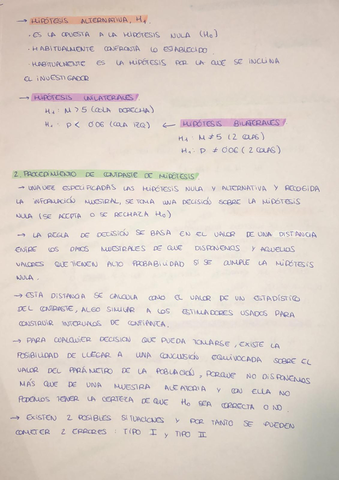 → HIPÓTESIS ALTERNATIVA, H₁
· ES LA OPUESTA A LA HIPÓTESIS NULA (H₀)
· HABITUALMENTE CONFRONTA LO ESTABLECIDO
· HABITUALMENTE ES LA HIPÓTESIS POR LA QUE SE INCLINA
EL INVESTIGADOR
→ HIPÓTESIS UNILATERALES
H₁: M > 5 (COLA DERECHA)
H₁: P < 0'06 (COLA IZQ)
← HIPÓTESIS BILATERALES
H₁: M ≠ 5 (2 COLAS)
H₁: P ≠ 0'06 (2 COLAS)
2. PROCEDIMIENTO DE CONTRASTE DE HIPÓTESIS
→ UNA VEZ ESPECIFICADAS LAS HIPÓTESIS NULA Y ALTERNATIVA Y RECOGIDA
LA INFORMACIÓN MUESTRAL, SE TOMA UNA DECISIÓN SOBRE LA HIPÓTESIS
NULA (SE ACEPTA O SE RECHAZA H₀)
→ LA REGLA DE DECISIÓN SE BASA EN EL VALOR DE UNA DISTANCIA
ENTRE LOS DATOS MUESTRALES DE QUE DISPONEMOS Y AQUELLOS
VALORES QUE TIENEN ALTO PROBABILIDAD SI SE CUMPLE LA HIPÓTESIS
NULA.
→ ESTA DISTANCIA SE CALCULA COMO EL VALOR DE UN ESTADÍSTICO
DEL CONTRASTE, ALGO SIMILAR A LOS ESTIMADORES USADOS PARA
CONSTRUIR INTERVALOS DE CONFIANZA.
→ PARA CUALQUIER DECISION QUE PUEDA TOMARSE, EXISTE LA
POSIBILIDAD DE LLEGAR A UNA CONCLUSIÓN EQUIVOCADA SOBRE EL
VALOR DEL PARÁMETRO DE LA POBLACIÓN, PORQUE NO DISPONEMOS
MÁS QUE DE UNA MUESTRA ALEATORIA Y CON ELLA NO
PODEMOS TENER LA CERTEZA DE QUE H₀ SEA CORRECTA O NO.
→ EXISTEN 2 POSIBLES SITUACIONES Y POR TANTO SE PUEDEN
COMETER 2 ERRORES: TIPO I Y TIPO II